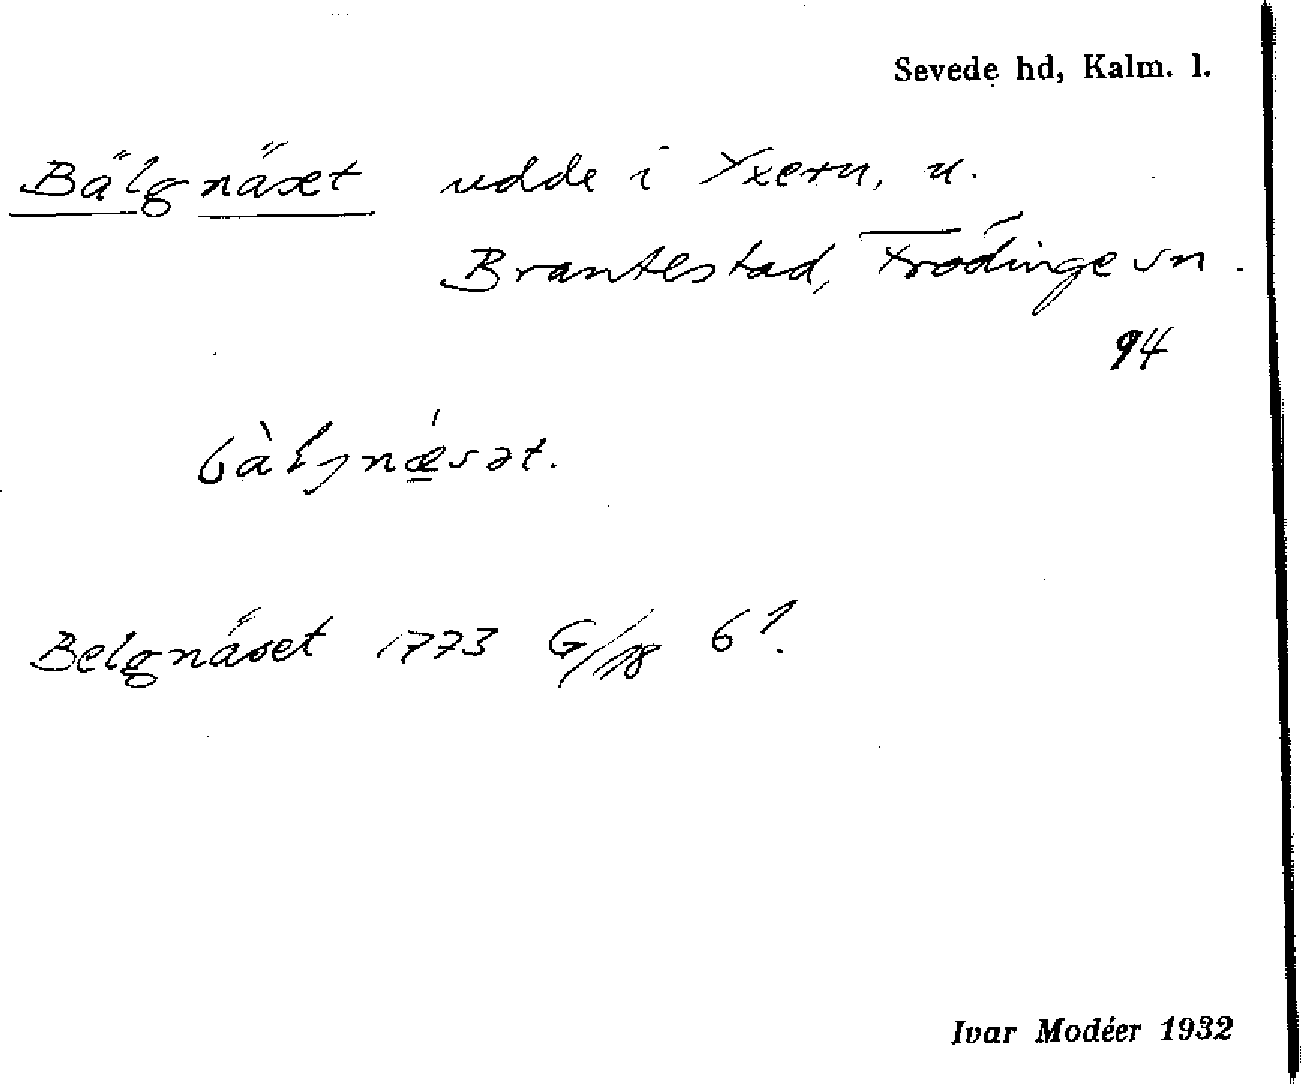 Sevede hd, Kalm. l.
Bälgnäset udde i Yxern, u.
Brantestad, Frödinge sn.
94
bàlgnǽ̱sət.
Belgnäset 1773 G/18 6¹.
Ivar Modéer 1932